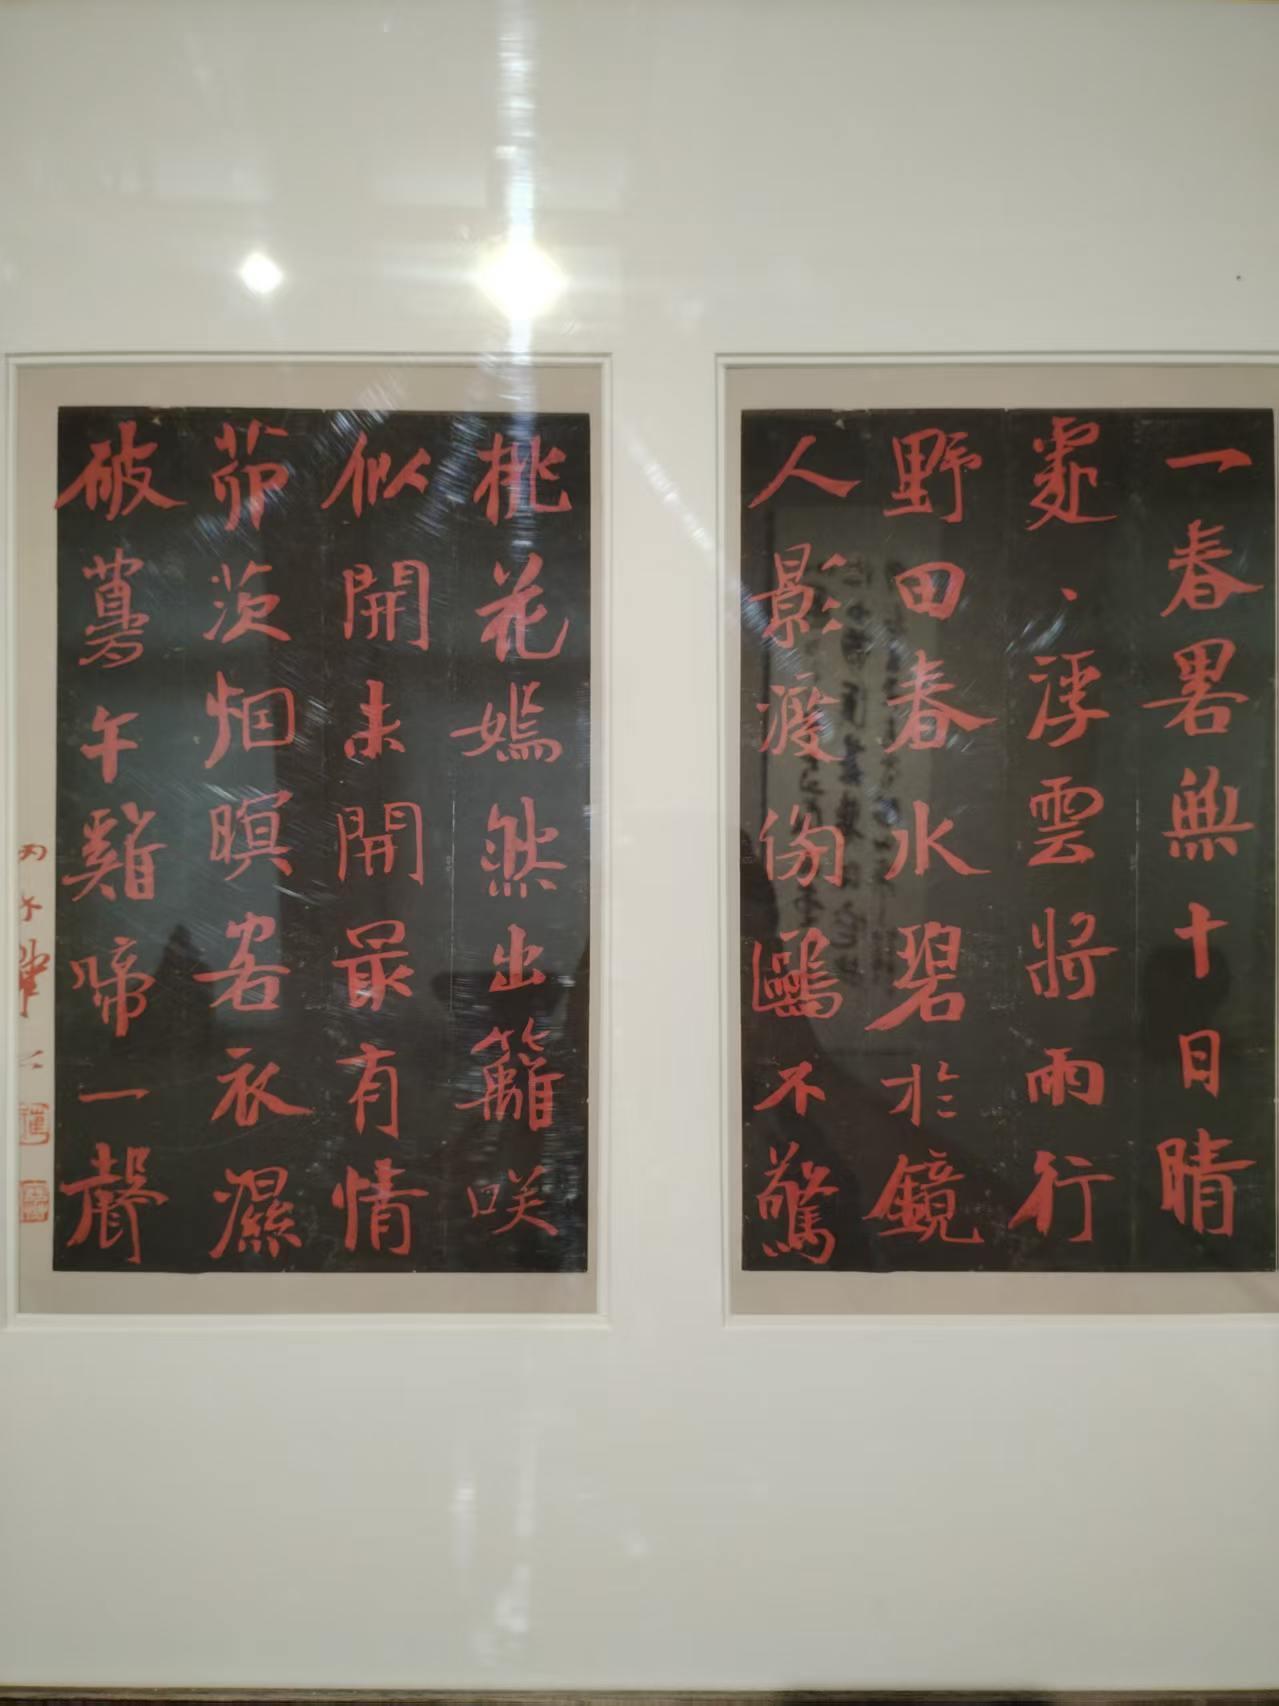 一春畧無十日晴
處、浮雲將雨行
野田春水碧於鏡
人影渡傍鷗不驚
桃花嫣然出籬咲
似開未開最有情
茆茨烟暝客衣濕
破夢午雞啼一聲
丙子